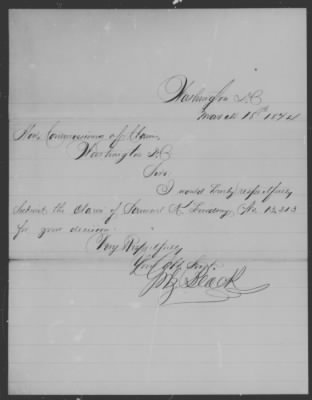 Washington D.C.
March 18th 1874
Hon. Commissioners of Claims,
Washington D.C.
Sirs:
I would truly respectfully
submit the claim of Samuel K. No. 13,313
for your decision.
Very Respectfully
Your Obt. Servt.
Black